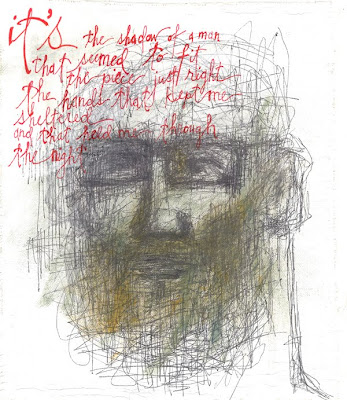 it's the shadow of a man
that seemed to fit
the piece just right
the hands that kept me
sheltered
and that held me through
the night